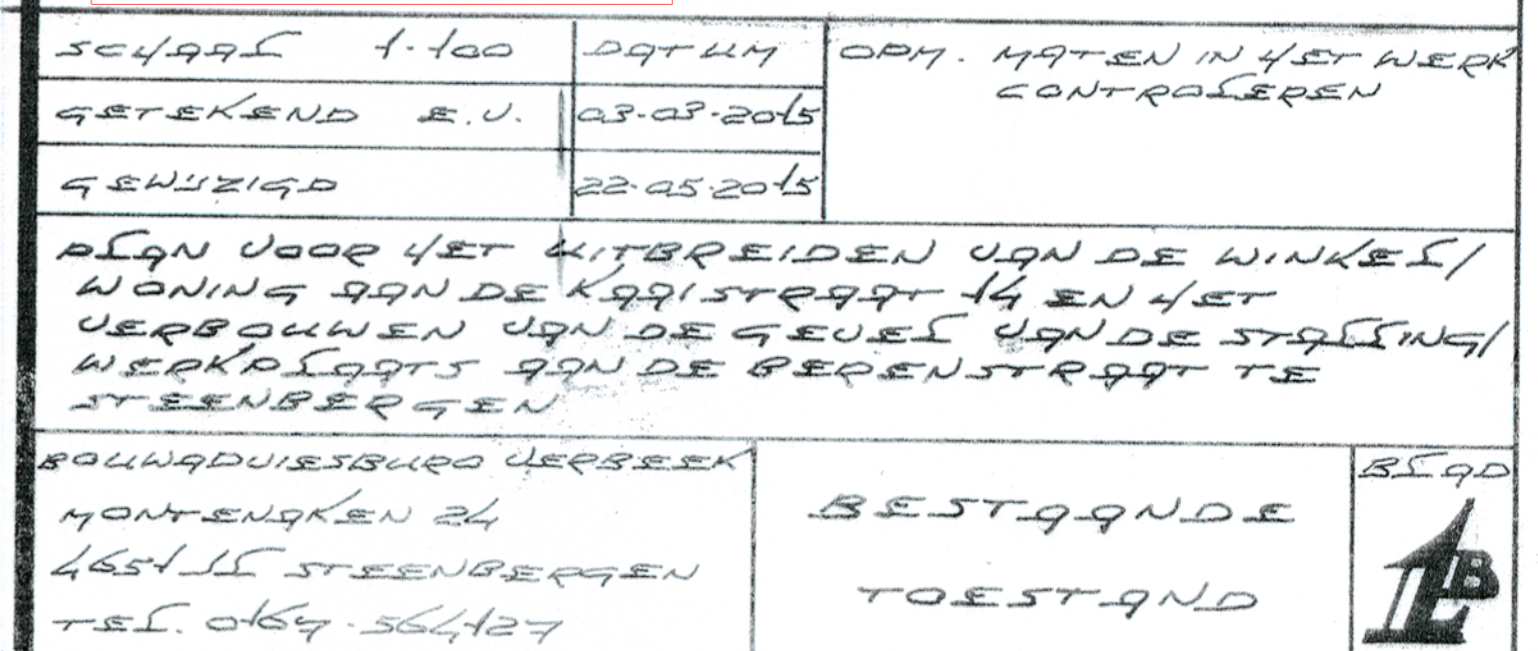 SCHAAL 1-100 DATUM OPM. MATEN IN HET WERK
CONTROLEREN
GETEKEND E.V. 03-03-2015
GEWIJZIGD 22-05-2015
PLAN VOOR HET UITBREIDEN VAN DE WINKEL/
WONING AAN DE KAAISTRAAT 14 EN HET
VERBOUWEN VAN DE GEVEL VAN DE STALLING/
WERKPLAATS AAN DE BERENSTRAAT TE
STEENBERGEN
BOUWADVIESBURO VERBEEK
MONTENAKEN 24
4651 JL STEENBERGEN
TEL. 0167-564127
BESTAANDE
TOESTAND
BLAD
1